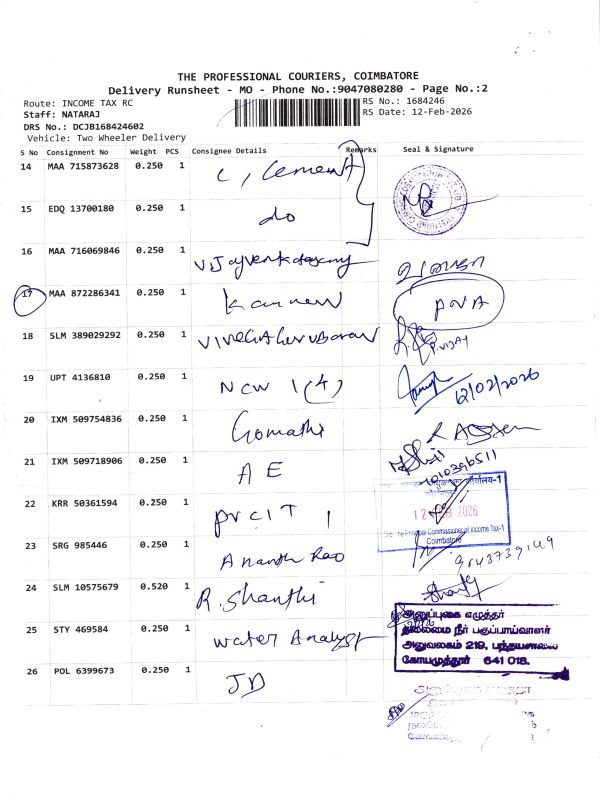 THE PROFESSIONAL COURIERS, COIMBATORE
Delivery Runsheet - MO - Phone No.:9047080280 - Page No.:2
Route: INCOME TAX RC
RS No.: 1684246
Staff: NATARAJ
RS Date: 12-Feb-2026
DRS No.: DCJB168424602
Vehicle: Two Wheeler Delivery
S No Consignment No Weight PCS Consignee Details Remarks Seal & Signature
14 MAA 715873628 0.250 1 C, Cement
15 EDQ 13700180 0.250 1 do
16 MAA 716069846 0.250 1
17 MAA 872286341 0.250 1 Kannew PNA
18 SLM 389029292 0.250 1 P.VIJAY
19 UPT 4136810 0.250 1 NCW 1(4) 12/02/2026
20 IXM 509754836 0.250 1 Gomathi
21 IXM 509718906 0.250 1 A E
22 KRR 50361594 0.250 1 PrCIT 1
12 FEB 2026
O/o the Principal Commissioner of Income Tax-1
Coimbatore
23 SRG 985446 0.250 1 Ananth Rao
24 SLM 10575679 0.520 1 R. Shanthi
25 STY 469584 0.250 1 Water Analyst
அனுப்புகை எழுத்தர்
தலைமை நீர் பகுப்பாய்வாளர்
அலுவலகம் 219, பந்தயசாலை
கோயமுத்தூர் 641 018.
26 POL 6399673 0.250 1 JD